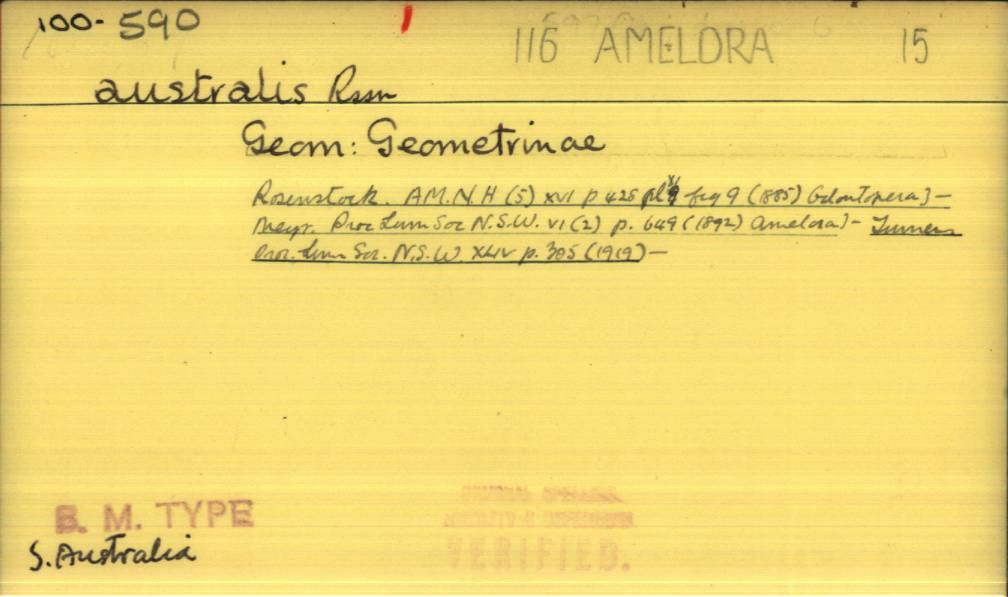 100-590
116 AMELORA 15
australis Rssn
Geom: Geometrinae
Rosenstock. A.M.N.H (5) XVI p 425 pl fig 9 (1885) Odontopera]-
Meyr. Proc Linn Soc N.S.W. VI (2) p. 649 (1892) Amelora]- Turner
Proc. Linn Soc. N.S.W. XLIV p. 385 (1919)-
B. M. TYPE
S. Australia
VERIFIED.